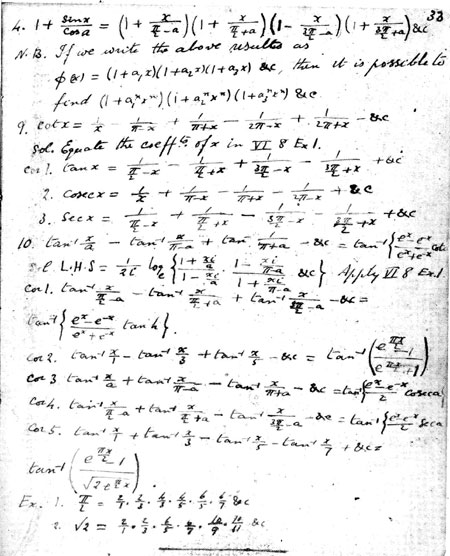 33
4. 1 + sin x / cos a = (1 + x/(π/2 - a)) (1 + x/(π/2 + a)) (1 - x/(3π/2 - a)) (1 + x/(3π/2 + a)) &c
N.B. If we write the above results as
φ(x) = (1 + a₁x)(1 + a₂x)(1 + a₃x) &c, then it is possible to
find (1 + a₁ⁿxⁿ)(1 + a₂ⁿxⁿ)(1 + a₃ⁿxⁿ) &c
9. cot x = 1/x - 1/(π-x) + 1/(π+x) - 1/(2π-x) + 1/(2π+x) - &c
Sol. Equate the coeffts of x in VI 8 Ex 1.
Cor 1. tan x = 1/(π/2 - x) - 1/(π/2 + x) + 1/(3π/2 - x) - 1/(3π/2 + x) + &c
2. cosec x = 1/x + 1/(π-x) - 1/(π+x) - 1/(2π-x) + &c
3. Sec x = 1/(π/2 - x) + 1/(π/2 + x) - 1/(3π/2 - x) - 1/(3π/2 + x) + &c
10. tan⁻¹ x/a - tan⁻¹ x/(π-a) + tan⁻¹ 1/(π+a) - &c = tan⁻¹ {(eˣ - e⁻ˣ)/(eˣ + e⁻ˣ) cot
L.H.S = 1/2i log {(1 + xi/a)/(1 - xi/a) · (1 - xi/(π-a))/(1 + xi/(π-a)) &c} Apply VI 8 Ex 1.
Cor 1. tan⁻¹ x/(π/2 - a) - tan⁻¹ x/(π/2 + a) + tan⁻¹ x/(3π/2 - a) - &c =
tan⁻¹ {(eˣ - e⁻ˣ)/(eˣ + e⁻ˣ) tan }.
Cor 2. tan⁻¹ x/1 - tan⁻¹ x/3 + tan⁻¹ x/5 - &c = tan⁻¹ ((e^(πx/2) - 1)/(e^(πx/2) + 1))
Cor 3 tan⁻¹ x/a + tan⁻¹ x/(π-a) - tan⁻¹ x/(π+a) - &c = tan⁻¹ {(eˣ - e⁻ˣ)/2 cosec a}
Cor 4. tan⁻¹ x/(π/2 - a) + tan⁻¹ x/(π/2 + a) - tan⁻¹ x/(3π/2 - a) - &c = tan⁻¹ {(eˣ - e⁻ˣ)/2 Sec a
Cor 5. tan⁻¹ x/1 + tan⁻¹ x/3 - tan⁻¹ x/5 - tan⁻¹ x/7 + &c =
tan⁻¹ ((e^(πx/2) - 1)/(√2 e^(πx/4)))
Ex. 1. π/2 = 2/1 · 2/3 · 4/3 · 4/5 · 6/5 · 6/7 &c
2. √2 = 2/1 · 2/3 · 6/5 · 6/7 · 10/9 · 10/11 &c